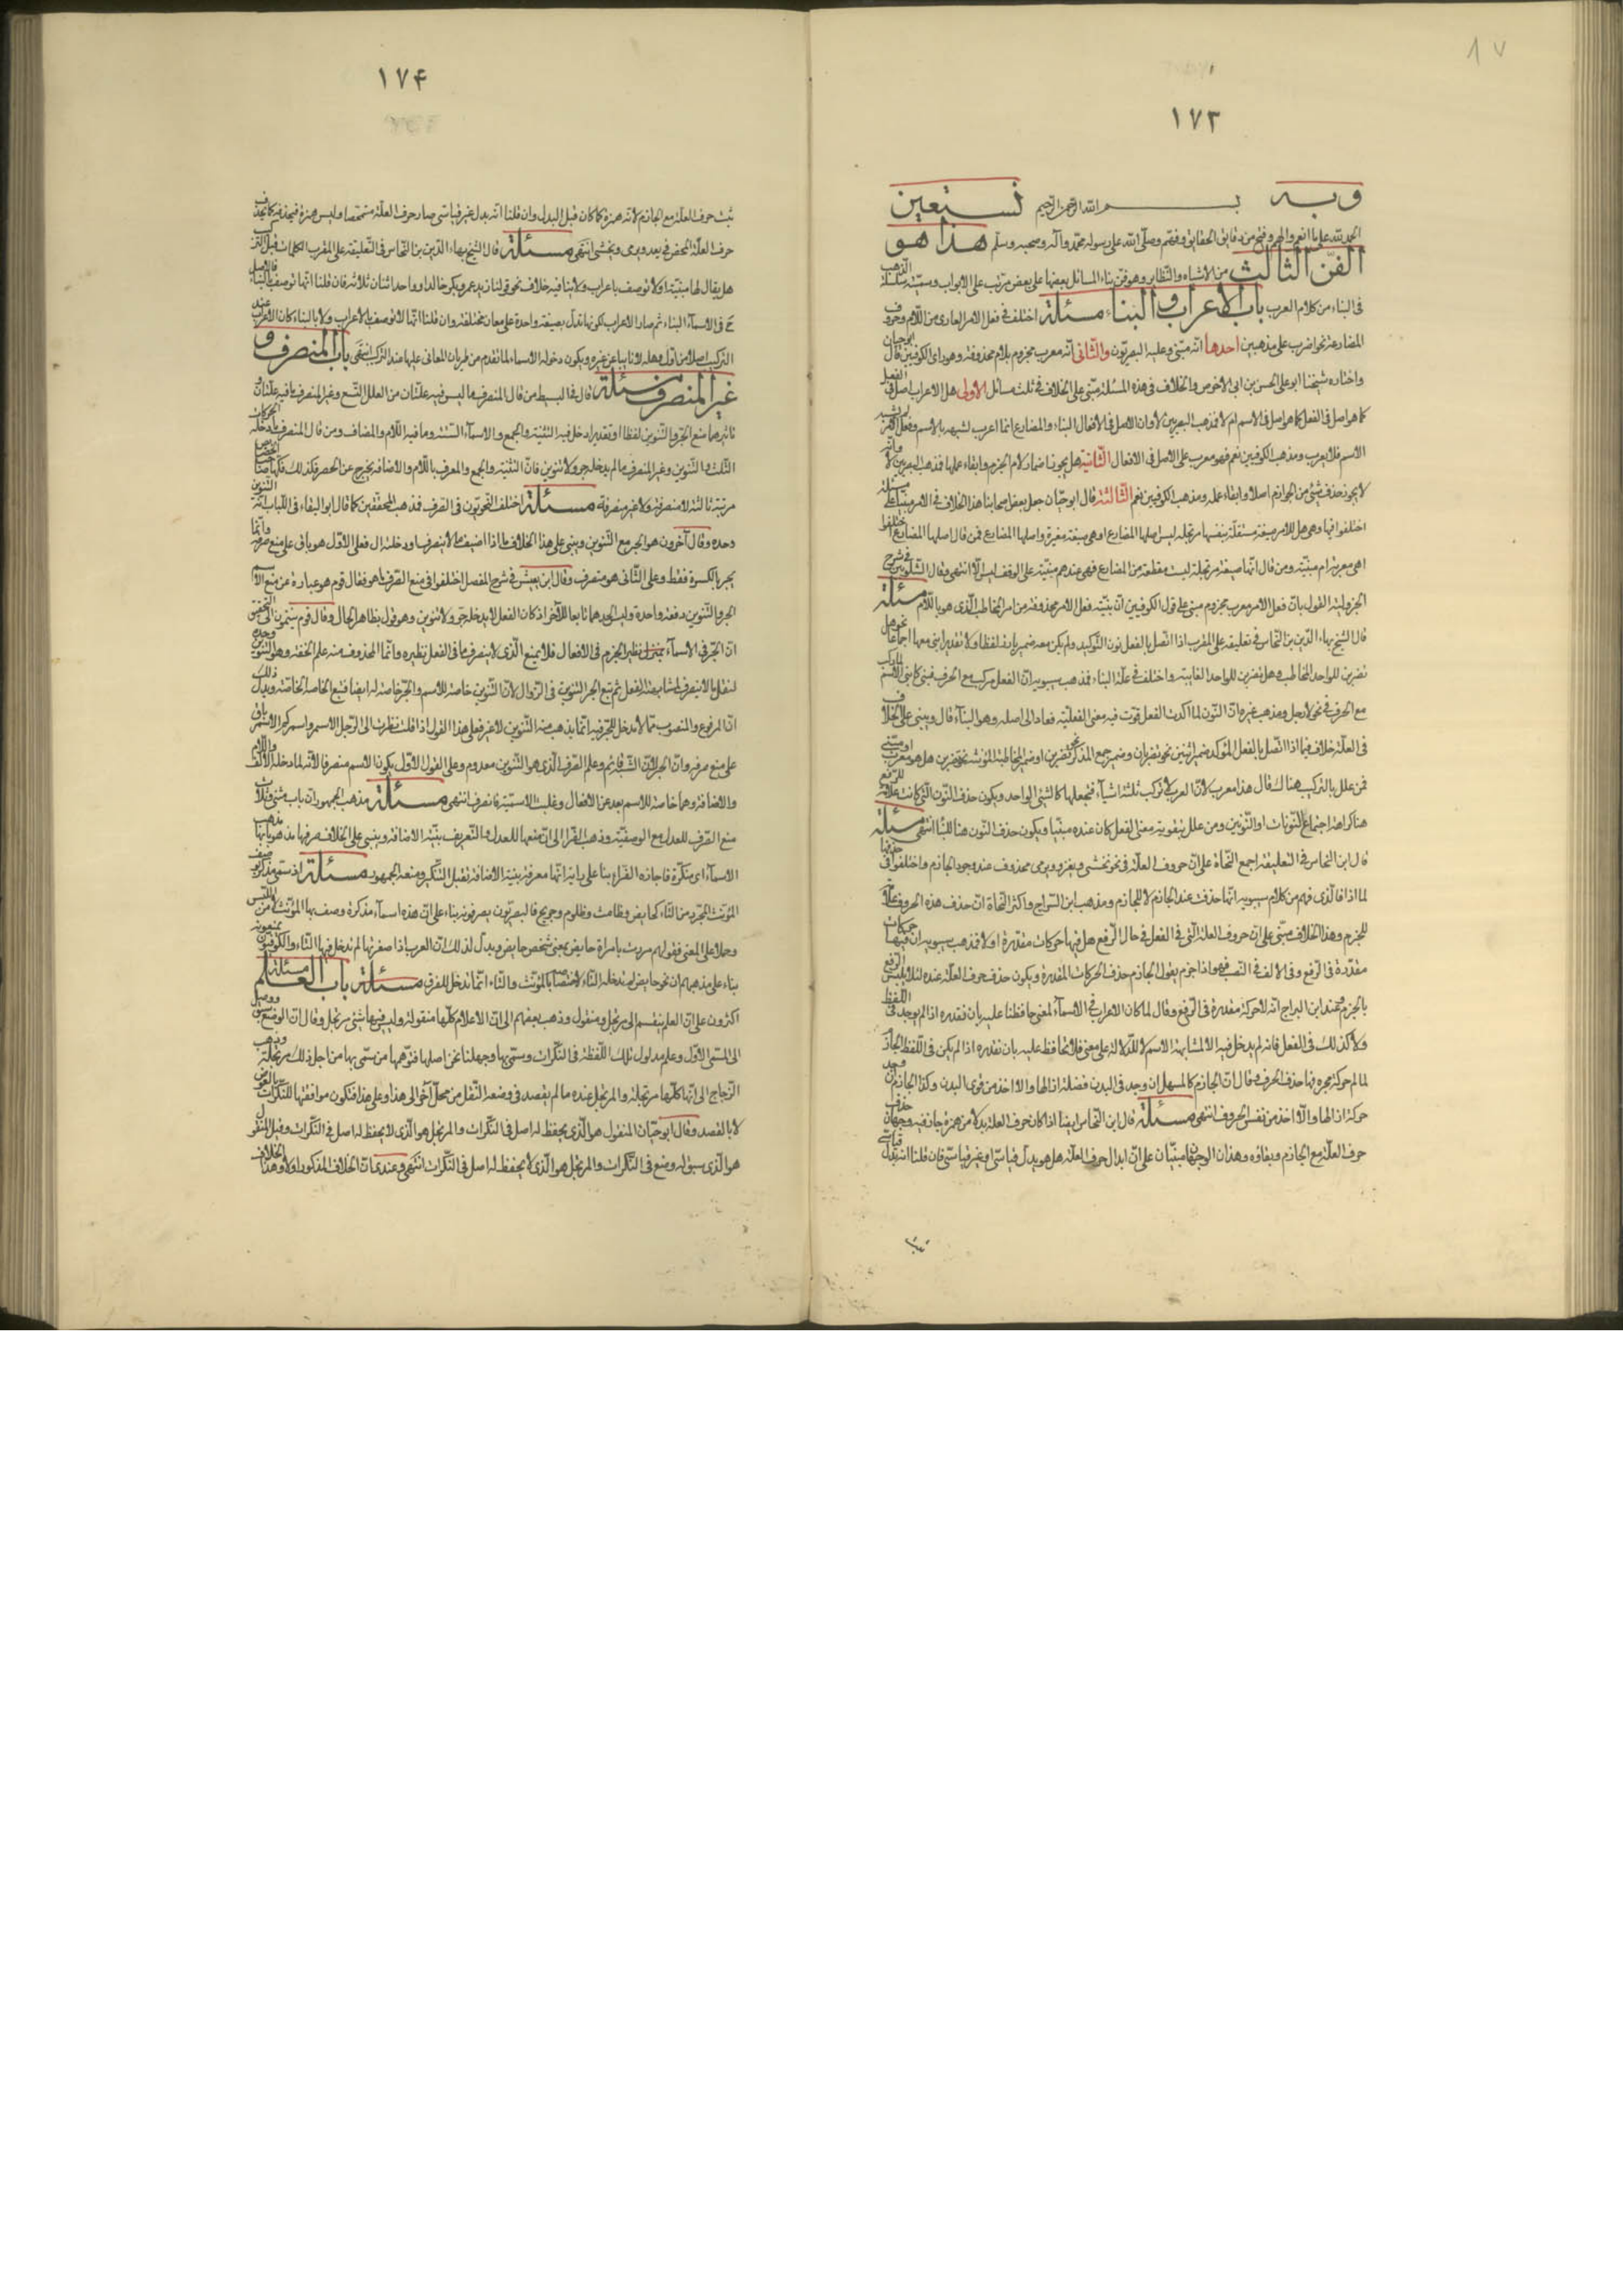 ١٧٣
وبه بسم الله الرحمن الرحيم نستعين
الحمد لله على ما انعم والهم وفتح من دقايق الحقايق وفهّم وصلّى الله على رسوله محمّد وآله وصحبه وسلّم هذا هو
الفنّ الثالث من الاشباه والنّظاير وهو فنّ بناء المسائل بعضها على بعض مرتّب على الابواب وسمّيته سلسلة الذّهب
فى البناء من كلام العرب باب الاعراب والبناء مسئلة اختلف فى فعل الامر العارى من اللّام وحروف
المضارعة نحو اضرب على مذهبين احدها انّه مبنّى وعليه البصريّون والثّانى انّه معرب مجزوم بلام محذوفة وهو راى الكوفيّين قال ابوحيّان
واختاره شيخنا ابو على الحسن بن ابى الاحوص والخلاف فى هذه المسئلة مبنّى على الخلاف فى ثلث مسائل الاولى هل الاعراب اصل فى الفعل
كما هو اصل فى الاسم ام لا فمذهب البصريّين لا وان الاصل فى الافعال البناء والمضارع انما اعرب لشبهه بالاسم وفعل الامر لم يشبه
الاسم فلا يعرب ومذهب الكوفيّين نعم فهو معرب على الاصل فى الافعال الثّانية هل يجوز اضمار لام الجزم وابقاء عملها فمذهب البصريين لا وانه
لا يجوز حذف شئ من الجوازم اصلا وابقاء عمله ومذهب الكوفيّين نعم الثّالثة قال ابوحيّان جعل بعض اصحابنا هذا الخلاف فى الامر مبنيّا على مسئلة
اختلفوا فيها وهى هل للامر صيغة مستقلّة بنفسها مرتجلة ليس اصلها المضارع او هى صيغة مغيرة واصلها المضارع فمن قال اصلها المضارع اختلفوا
اهى معربة ام مبنيّة ومن قال انّها صيغة مرتجلة ليست مقطعة من المضارع فهى عندهم مبنيّة على الوقف ليس الّا انتهى وقال الشّلوبين فى شرح
الجزوليّة القول بانّ فعل الامر معرب مجزوم مبنى على قول الكوفيين انّ بنيّة فعل الامر محذوفة من امر المخاطب الّذى هو باللّام مسئلة
قال الشّيخ بهاء الدّين بن النّحاس فى تعليقه على المقرب اذا اتّصل بالفعل نون التّوكيد ولم يكن معه ضمير بارز لفظا ولا تقديرا بنى معها اجماعا نحو هل
تضربن للواحد المخاطب وهل تضربن للواحد الغايبة واختلف فى علّة البناء فمذهب سيبويه انّ الفعل مركّب مع الحرف فبنى كما بنى الاسم لمّا ركّب
مع الحرف فى نحو لا رجل ومذهب غيره انّ النّون لما اكدت الفعل قوّت فيه معنى الفعليّة فعاد الى اصله وهو البناء قال وينبنى على الخلاف
فى العلّة خلاف فيما اذا اتّصل بالفعل المؤكّد ضمير اثنين نحو تضربان وضمير جمع المذكّر نحو تضربن او ضمير المخاطبة المؤنّثة نحو تضربن هل هو معرب او مبنّى
فمن علل بالتركيب هناك قال هذا معرب لانّ العرب لا تركب ثلثة اشياء فتجعلها كالشّئ الواحد ويكون حذف النّون الّتى كانت علامة للرّفع
هنا كراهة اجتماع النّونات او النّونين ومن علل بتقوية معنى الفعل كان عنده مبنيّا ويكون حذف النّون هنا للبناء انتهى مسئلة
قال ابن النّحاس فى التعليقة اجمع النّحاة على انّ حروف العلّة فى نحو نخشى ويغزو ويرمى محذوف عند وجود الجازم واختلفوا فى حذفها
لماذا فالّذى فهم من كلام سيبويه انّها حذفت عند الجازم لا للجازم ومذهب ابن السّراج واكثر النّحاة انّ حذف هذه الحروف علامة
للجزم وهذا الخلاف مبنّى على انّ حروف العلّة الّتى فى الفعل فى حال الرّفع هل فيها حركات مقدّرة او لا فمذهب سيبويه ان فيها حركات
مقدّرة فى الرّفع وفى الالف فى النّصب فهو اذا جزم يقول الجازم حذف الحركات المقدّرة ويكون حذف حرف العلّة عنده لئلا يلتبس الرّفع
بالجزم وعند ابن السراج انّه لا حركة مقدّرة فى الرّفع وقال لما كان الاعراب فى الاسماء لمعنى حافظنا عليه بان نقدره اذا لم يوجد فى اللّفظ
ولا كذلك فى الفعل فانه لم يدخل فيه الّا لمشابهة الاسم لا للدّلالة على معنى فلا نحافظ عليه بان نقدّره اذا لم يكن فى اللّفظ فالجازم
لما لم حركة مجره فيها حذف الحرف وقال انّ الجازم كالمسهل ان وجد فى البدن فضلة ازالها والّا اخذ من قوى البدن وكذا الجازم ان وجد
حركة ازالها والّا اخذ من نفس الحروف انتهى مسئلة قال ابن النّحاس ايضا اذا كان حرف العلّة بدلا من همزة جاز فيه وجهان حذف
حرف العلّة مع الجازم وبقاؤه وهذان الوجهان مبنيّان على انّ ابدال حرف العلّة هل هو بدل قياسّى او غير قياسّى فان قلنا انه بدل قياسّى
١٧۴
ثبت حرف العلّة مع الجازم لانّه همزة كما كان قبل البدل وان قلنا انّه بدل غير قياسى صار حرف العلّة متمحضا وليس همزة فيحذف كما يحذف
حرف العلّة المحض فى يغزو ويرمى ويخشى انتهى مسئلة قال الشّيخ بهاء الدّين بن النّحاس فى التّعليقة على المقرب الكلمات قبل التركيب
هل يقال لها مبنيّة او لا توصف باعراب ولا بناء فيه خلاف نحو قولنا زيد عمرو بكر خالد او واحد اثنان ثلاثة فان قلنا انّها توصف بالبناء فالاصل
ح فى الاسماء البناء ثم صار الاعراب لكونها تدلّ بصيغة واحدة على معان مختلفة وان قلنا انّها لا توصف بالاعراب ولا بالبناء كان الاعراب عند
التركيب اصلا من اوّل وهلة لا نايبا عن غيره ويكون دخوله الاسماء لما تقدم من طريان المعانى عليها عند التركيب انتهى باب المنصرف و
غير المنصرف مسئلة قال فى البسيط من قال المنصرف ما ليس فيه علّتان من العلل التّسع وغير المنصرف ما فيه علّتان
تاثيرهما منع الجرّ والتّنوين لفظا او تقديرا دخل فيه التثنية والجمع والاسماء السّتّة وما فيه اللّام والمضاف ومن قال المنصرف ما دخله الحركات
الثّلث والتّنوين وغير المنصرف ما لم يدخله جر ولا تنوين فانّ التثنية والجمع والمعرف باللّام والاضافة يخرج عن الحصر فكذلك
مرتبة ثالثة لا منصرفة ولا غير منصرفة مسئلة اختلف النّحويّون فى الصّرف فمذهب المحقّقين كما قال ابو البقاء فى اللّباب انّه التّنوين
وحده وقال آخرون هو الجر مع التّنوين وينبنى على هذا الخلاف ما اذا اضيف ما لا ينصرف او دخلته ال فعلى الاوّل هو باق على منع صرفه وانّما
يجر بالكسرة فقط وعلى الثّانى هو منصرف وقال ابن يعيش فى شرح المفصل اختلفوا فى منع الصّرف ما هو فقال قوم هو عبارة عن منع الاسم
الجر والتّنوين دفعة واحدة وليس احدهما تابعا للآخر اذ كان الفعل لا يدخله جرّ ولا تنوين وهو قول بظاهر الحال وقال قوم ينتمون الى التحقيق
انّ الجرّ فى الاسماء نظير الجزم فى الافعال فلا يمنع الّذى لا ينصرف ما فى الفعل نظيره وانّما المحذوف منه علم الخفة وهو التّنوين وحده
لثقل ما لا ينصرف لمشابهته الفعل ثم تبع الجر التّنوين فى الزّوال لانّ التّنوين خاصّة للاسم والجرّ خاصّة له ايضا فتبع الخاصة الخاصّة ويدلّ ذلك
انّ المرفوع والمنصوب ممّا لا مدخل للجرّ فيه انّما يذهب منه التّنوين لا غير فعلى هذا القول اذا قلت نظرت الى الرّجل الاسمر واسمركم الاسمر باق
على منع صرفه وانّ انجرّ لانّ الشّبه قائم وعلم الصّرف الّذى هو التّنوين معدوم وعلى القول الاوّل يكون الاسم منصرفا لانّه لما دخله الالف واللّام
والاضافة وهما خاصّة للاسم بعد عن الافعال وغلبت الاسميّة فانصرف انتهى مسئلة مذهب الجمهور انّ باب مثنى وثلاث
منع الصّرف للعدل مع الوصفيّة وذهب الفرّاء الى انّ منعها للعدل والتّعريف بنيّة الاضافة وينبنى على الخلاف صرفها مذهوبا بها مذهب
الاسماء اى منكّرة فاجازه الفرّاء بناء على رايه انّها معرفة بنيّة الاضافة تقبل التّنكير ومنعه الجمهور مسئلة اذا سمّى مذكر بوصف
المؤنّث المجرّد من التّاء كحايض وطامث وظلوم وجريح فالبصريّون يصرفونه بناء على انّ هذه اسماء مذكرة وصف بها المؤنّث لامن اللّبس
وحملا على المعنى فقولهم مررت بامراة حايض بمعنى شخص حايض ويدلّ لذلك انّ العرب اذا صغرتها لم تدخل فيها التّاء والكوفيون يمنعونه
بناء على مذهبهم ان نحو حايض لم تدخله التاء لاختصاصه بالمؤنّث والتّاء انّما تدخل للفرق مسئلة باب العلم مسئلة
اكثرون على انّ العلم ينقسم الى مرتجل ومنقول وذهب بعضهم الى انّ الاعلام كلّها منقولة وليس فيها شئ مرتجل وقال انّ الوضع سبق ووصل
الى المسمّى الاوّل وعلم مدلول تلك اللّفظة فى النّكرات وسمّى بها وجهلنا نحن اصلها فتوهّمها من سمّى بها من اجل ذلك مرتجلة وذهب
الزّجاج الى انّها كلّها مرتجلة والمرتجل عنده ما لم يقصد فى وضعه النّقل من محلّ آخر الى هذا وعلى هذا فتكون موافقتها للنكرات بالعرض
لا بالقصد وقال ابوحيّان المنقول هو الّذى يحفظ له اصل فى النّكرات والمرتجل هو الّذى لا يحفظ له اصل فى النّكرات وقيل المنقول
هو الّذى سبق له وضع فى النّكرات والمرتجل هو الّذى لا يحفظ له اصل فى النّكرات انتهى وعندى انّ الخلاف المذكور اوّلا وهذا الخلاف